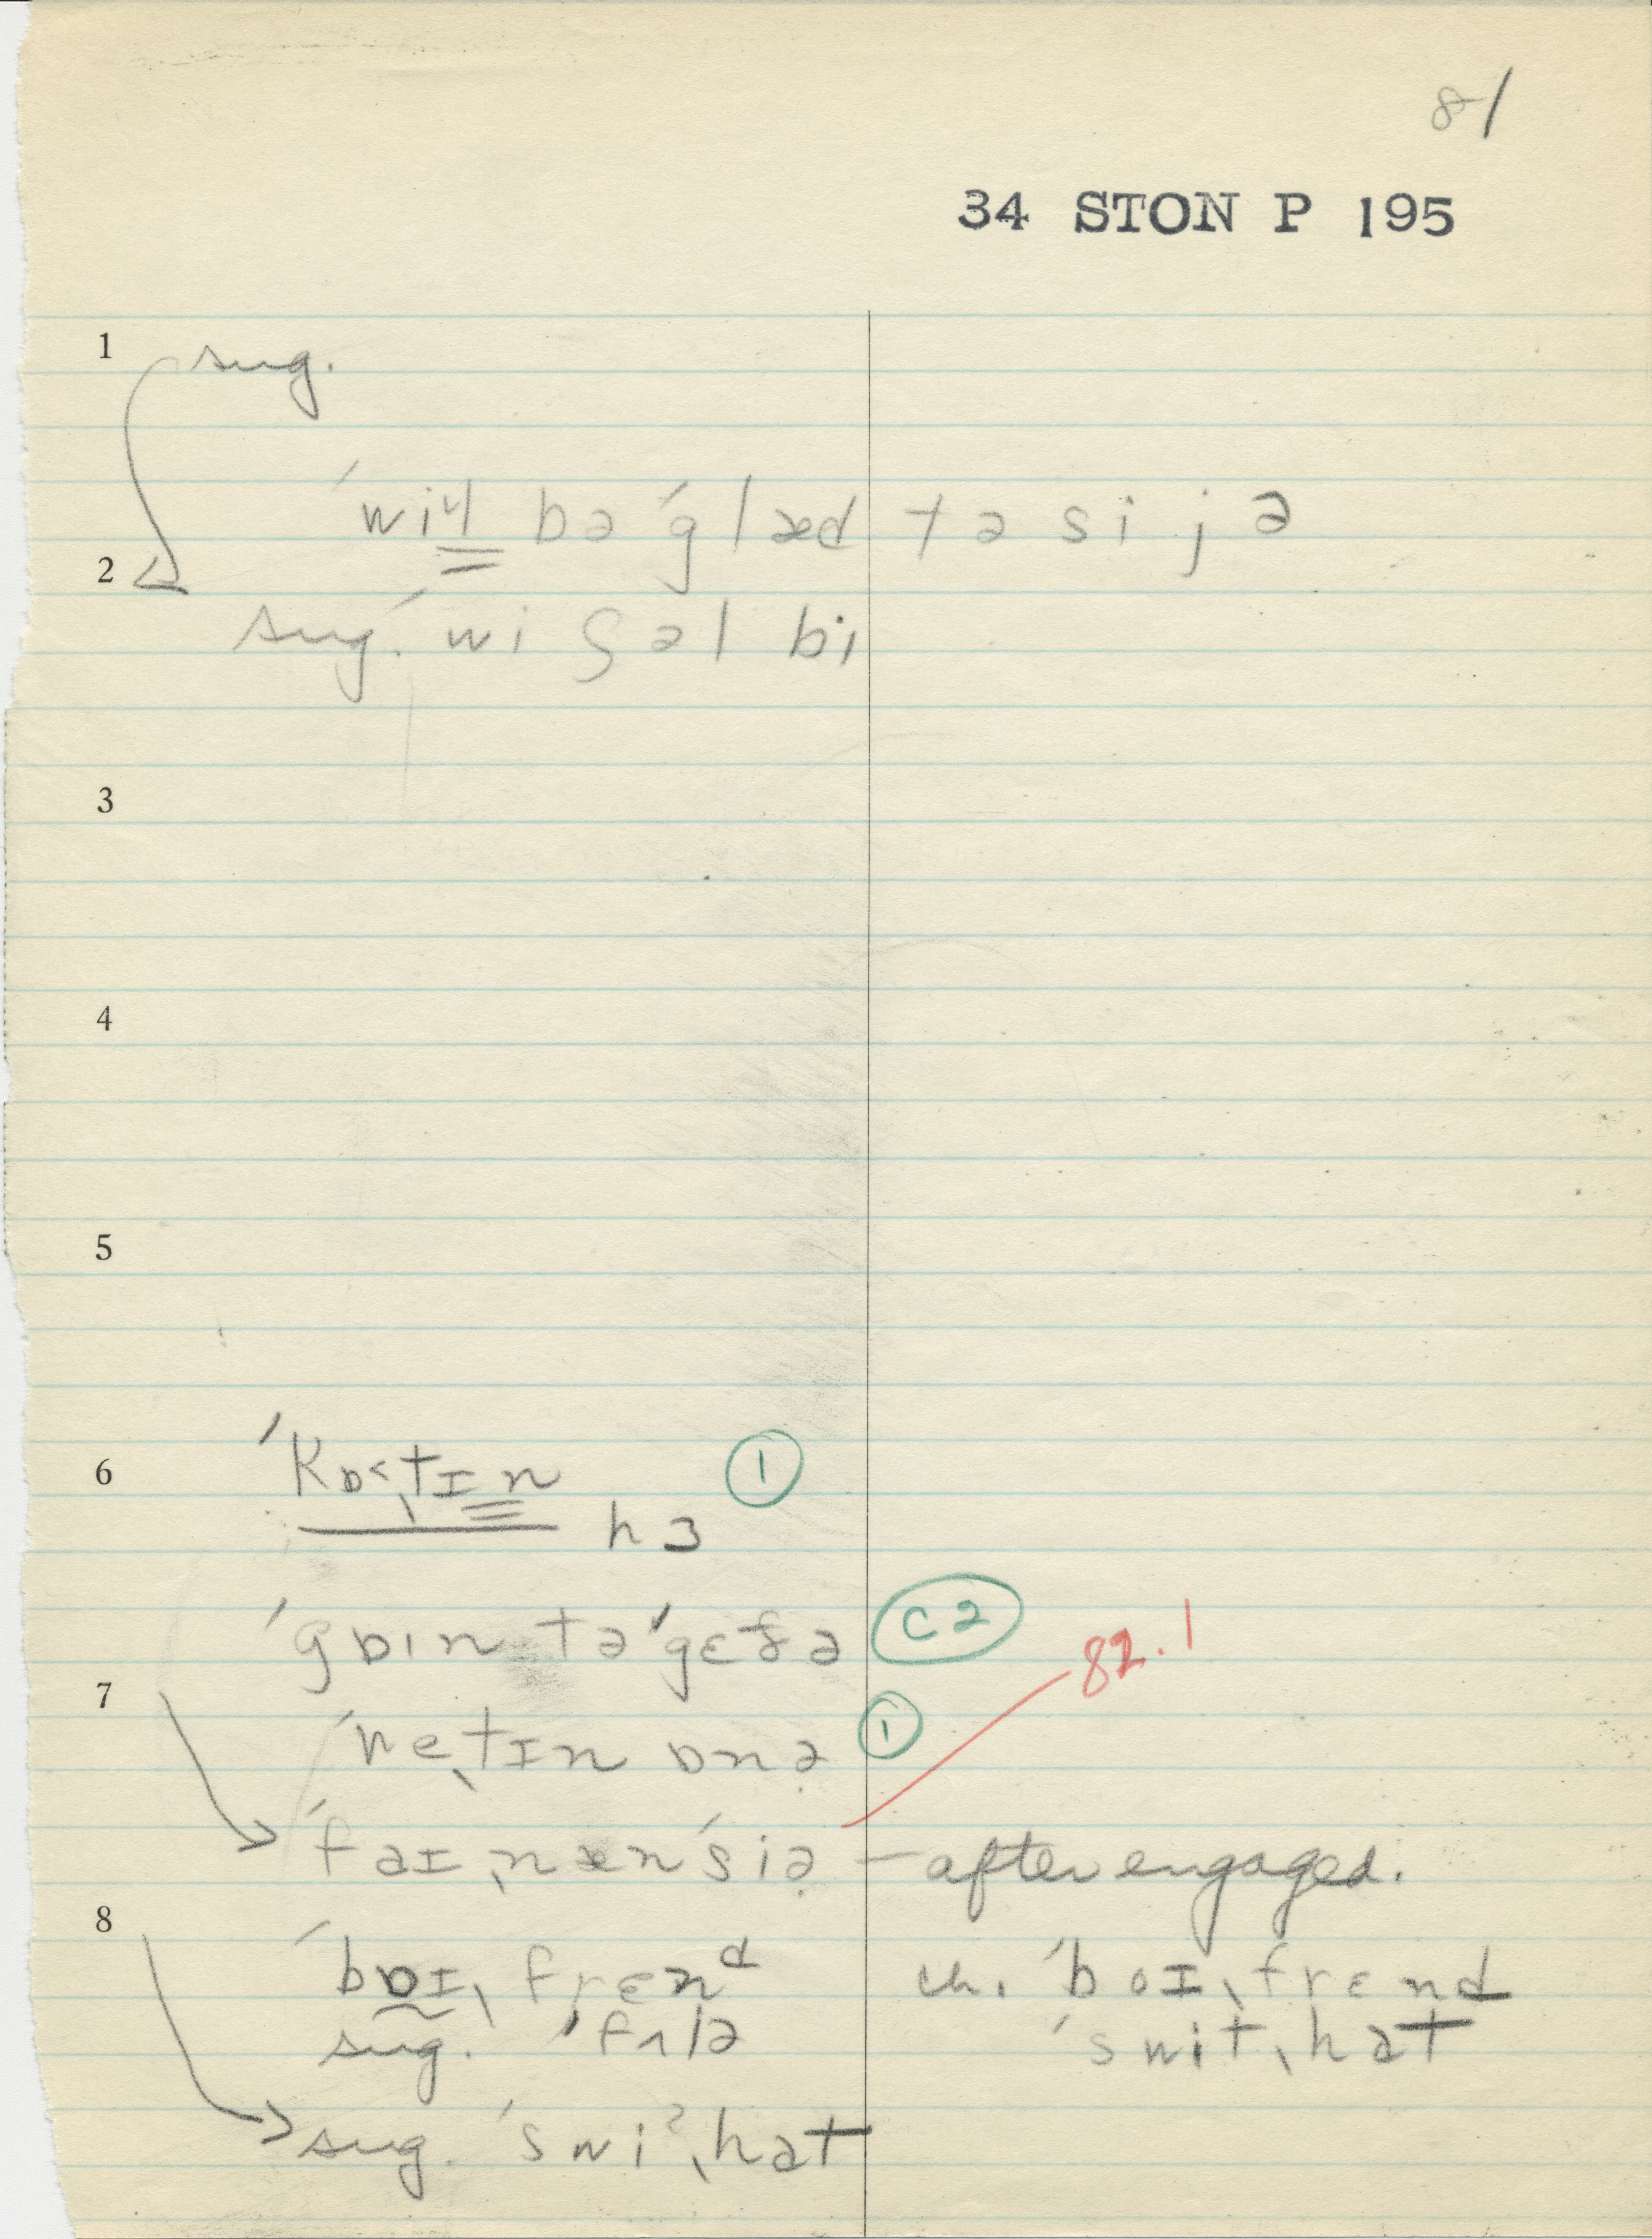 81
34 STON P 195
1 sug.
ˈwiɫ bəˈglæd tə si jə
2
sug. ˈwi ʃəl bi
3
4
5
6 ˈkɒ˂ˌtɪn ①
hɜ
ˈgɒɪn təˈgɛðə C2
7 82.1
ˈweˌtɪn ɒnə ①
ˈfaɪˌnænˈsiə — after engaged.
8
ˈbɒɪˌfrɛnᵈ ch. ˈboɪˌfrɛnd
sug. ˈfɛlə ˈswitˌhat
sug. ˈswiˀˌhat